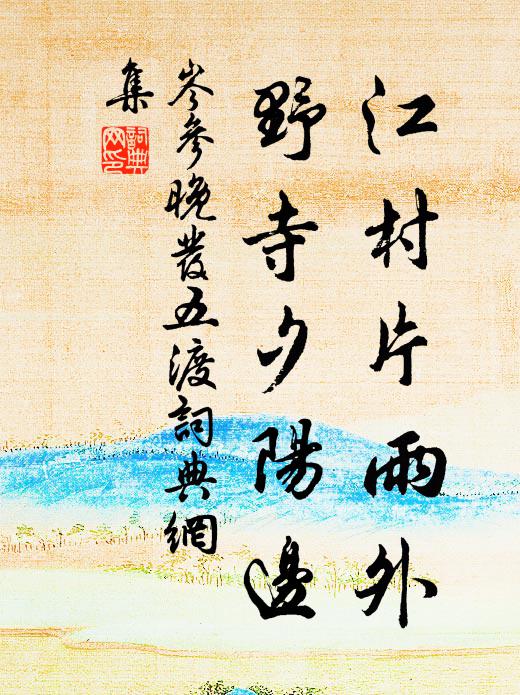 江村片雨外
野寺夕陽邊
岑參晚發五渡詞典網
集
詞典网印